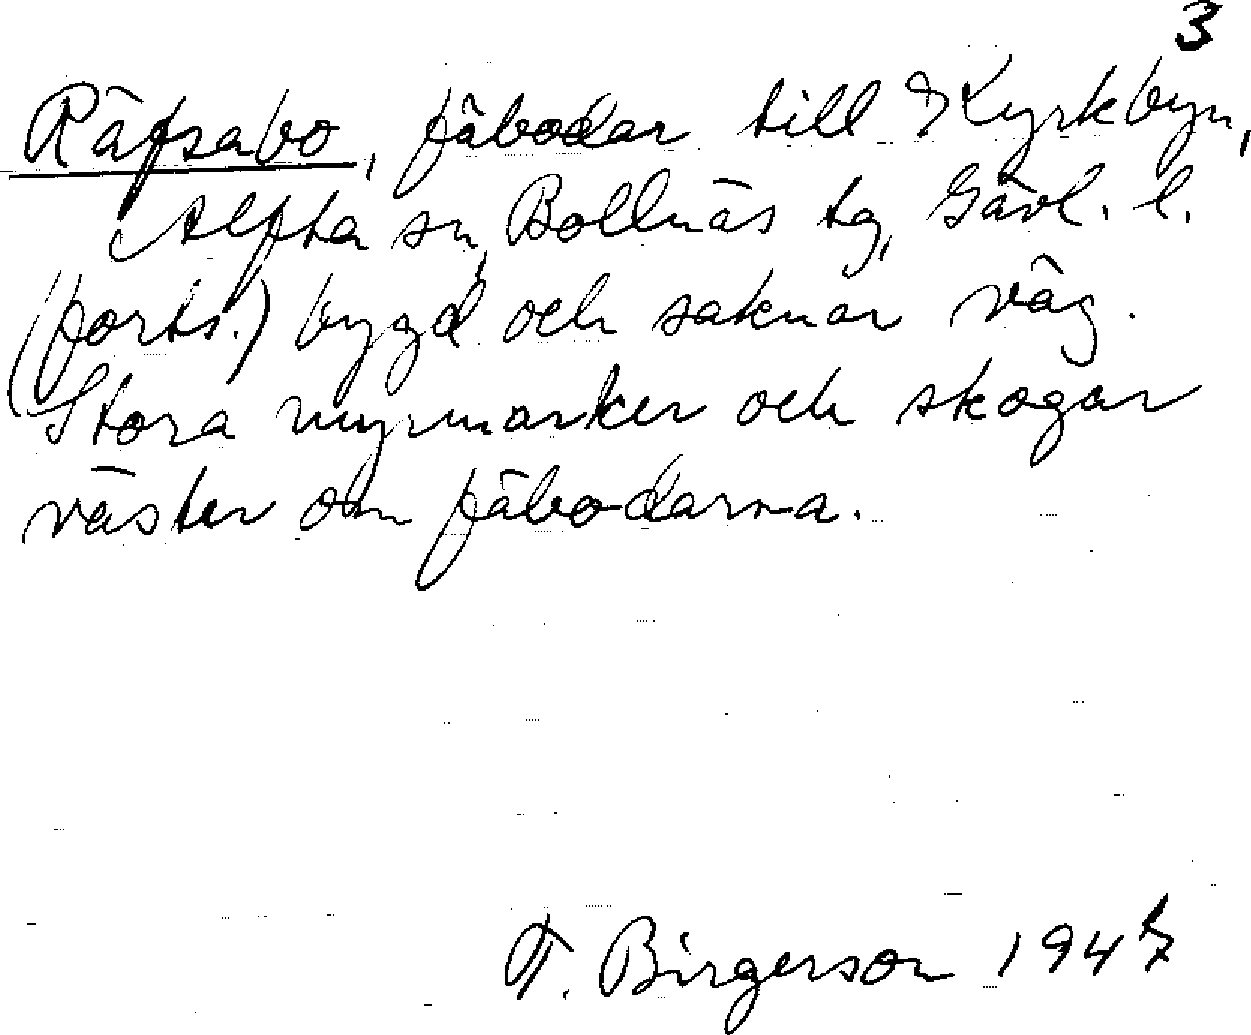 3
Räfsabo, fäbodar till Kyrkbyn,
Alfta sn, Bollnäs tg, Gävl. l.
(forts.) bygd och saknar väg.
Stora myrmarker och skogar
väster om fäbodarna.
F. Birgerson 1947